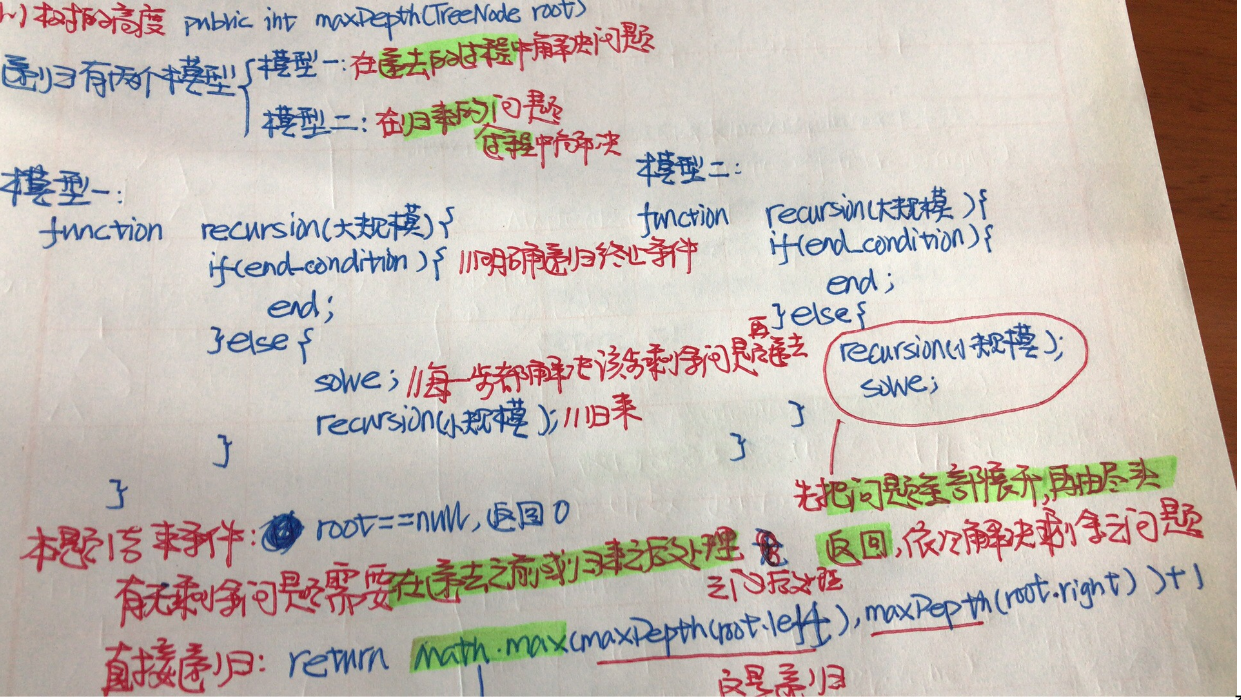 树的高度 public int maxDepth(TreeNode root)
递归有两个模型{模型一:在递去的过程中解决问题
模型二:在归来的问题
过程中解决
模型一:
function recursion(大规模){
if(end_condition){ //明确递归终止条件
end;
}else{
solve; //每一步都解决该步剩余问题再递去
recursion(小规模); //归来
}
}
模型二:
function recursion(大规模){
if(end_condition){
end;
}else{
recursion(小规模);
solve;
}
}
先把问题全部展开,再由尽头
返回,依次解决剩余问题
本题结束条件: root==null, 返回0
有无剩余问题需要在递去之前或归来之后处理
直接递归: return math.max(maxDepth(root.left), maxDepth(root.right))+1